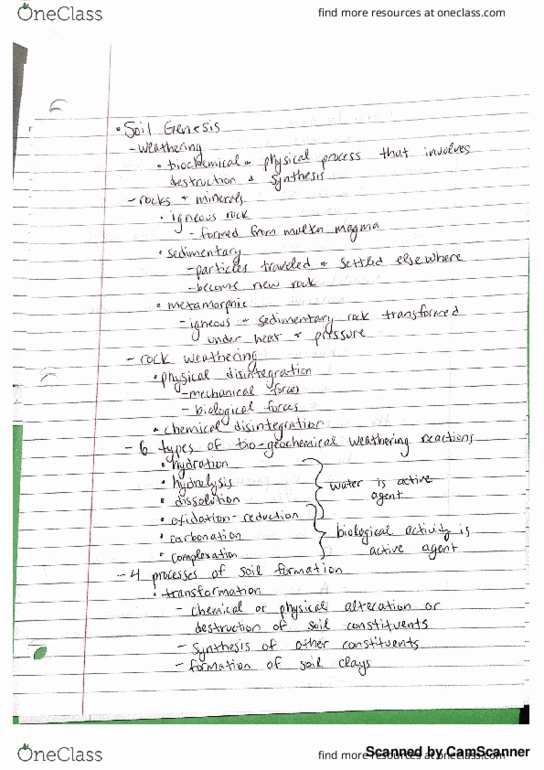 OneClass
find more resources at oneclass.com
• Soil Genesis
- weathering
• biochemical + physical process that involves
destruction + synthesis
- rocks + minerals
• igneous rock
- formed from molten magma
• sedimentary
- particles traveled + settled elsewhere
- become new rock
• metamorphic
- igneous + sedimentary rock transformed
under heat + pressure
- rock weathering
• physical disintegration
- mechanical forces
- biological forces
• chemical disintegration
- 6 types of bio-geochemical weathering reactions
• hydration
• hydrolysis
water is active
agent
• dissolution
• oxidation-reduction
• carbonation
biological activity is
active agent
• complexation
- 4 processes of soil formation
• transformation
- chemical or physical alteration or
destruction of soil constituents
- synthesis of other constituents
- formation of soil clays
OneClass
find more resources at oneclass.com
Scanned by CamScanner